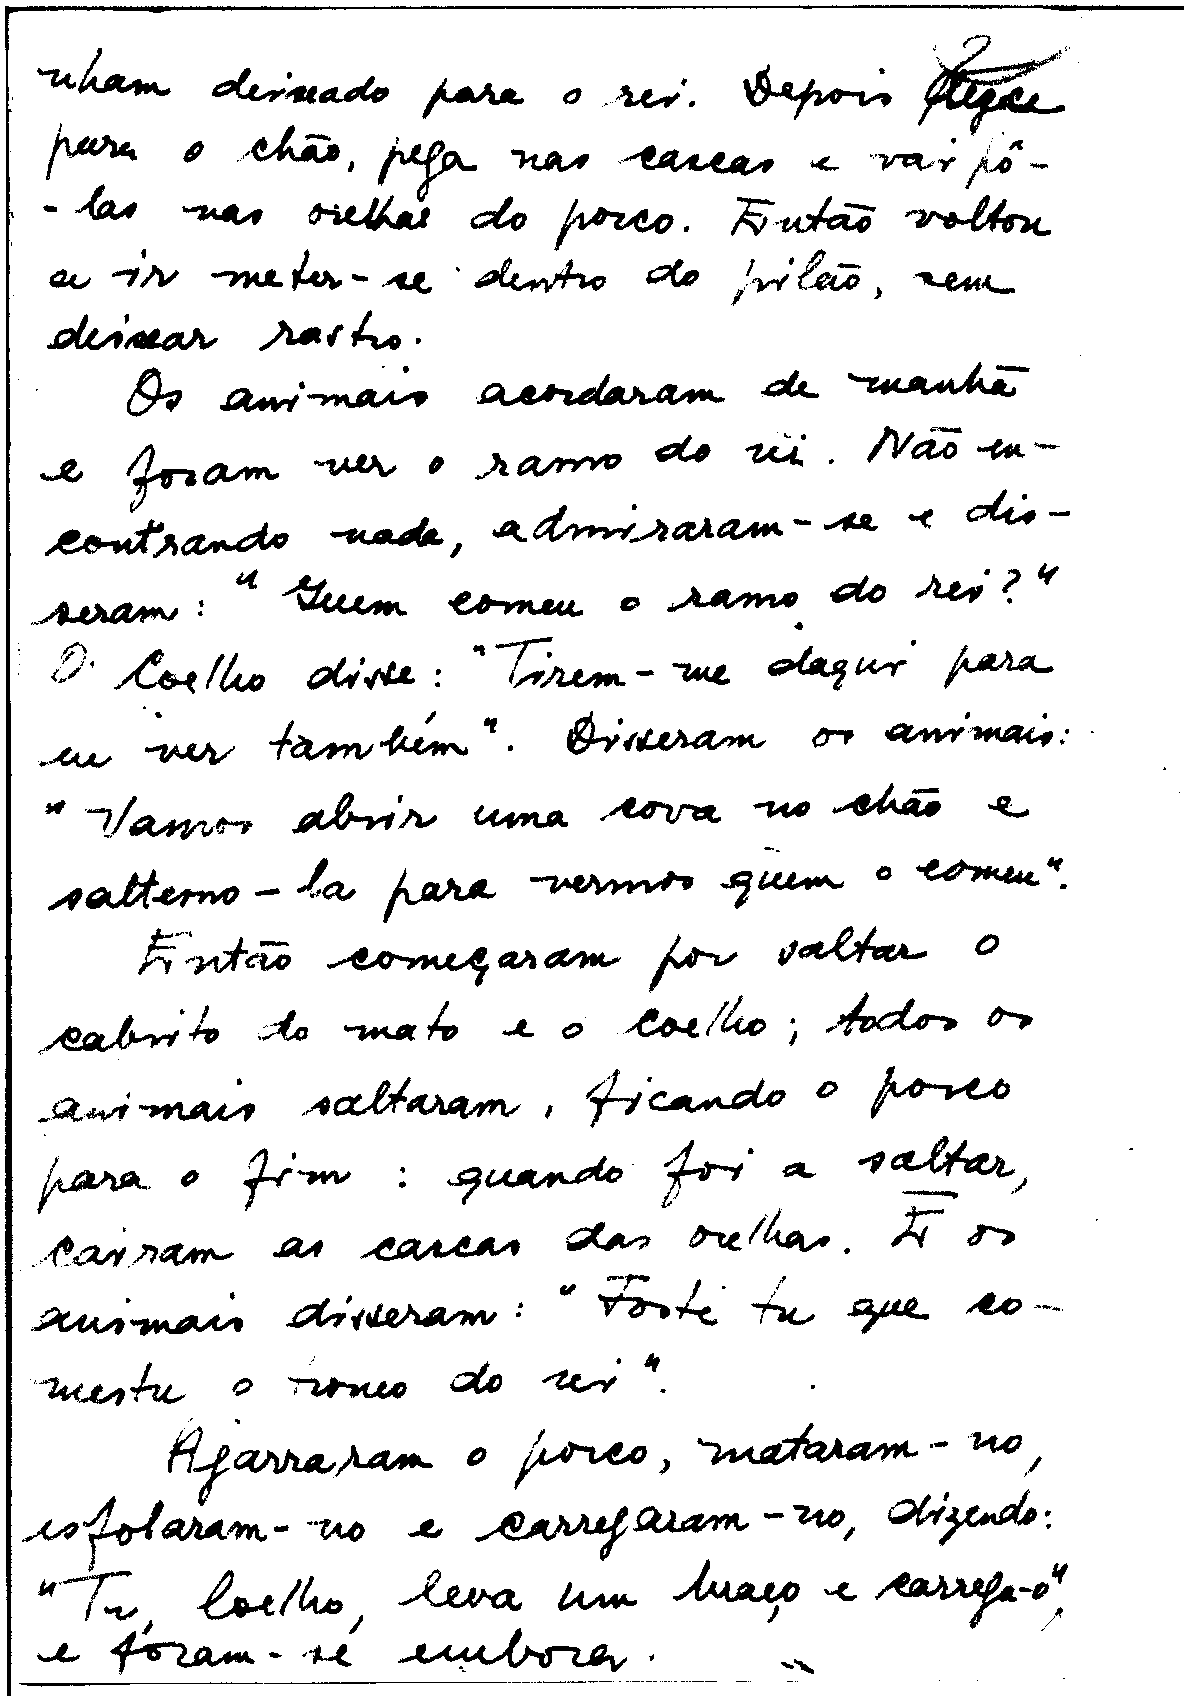 nham deixado para o rei. Depois
para o chão, pega nas cascas e vai pô-
-las nas orelhas do porco. Então voltou
a ir meter-se dentro do pilão, sem
deixar rastro.
Os animais acordaram de manhã
e foram ver o ramo do rei. Não en-
contrando nada, admiraram-se e dis-
seram: "Quem comeu o ramo do rei?"
O Coelho disse: "Tirem-me daqui para
eu ver também". Disseram os animais:
"Vamos abrir uma cova no chão e
saltemo-la para vermos quem o comeu".
Então começaram por saltar o
cabrito do mato e o coelho; todos os
animais saltaram, ficando o porco
para o fim: quando foi a saltar,
cairam as cascas das orelhas. E os
animais disseram: "Foste tu que co-
meste o tronco do rei".
Agarraram o porco, mataram-no,
esfolaram-no e carregaram-no, dizendo:
"Tu, Coelho, leva um braço e carrega-o",
e foram-se embora.